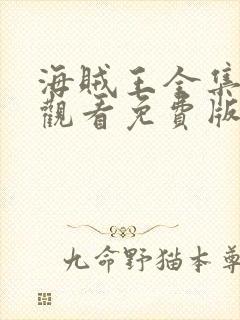 海賊王全集
觀看免費版
九命野猫本尊